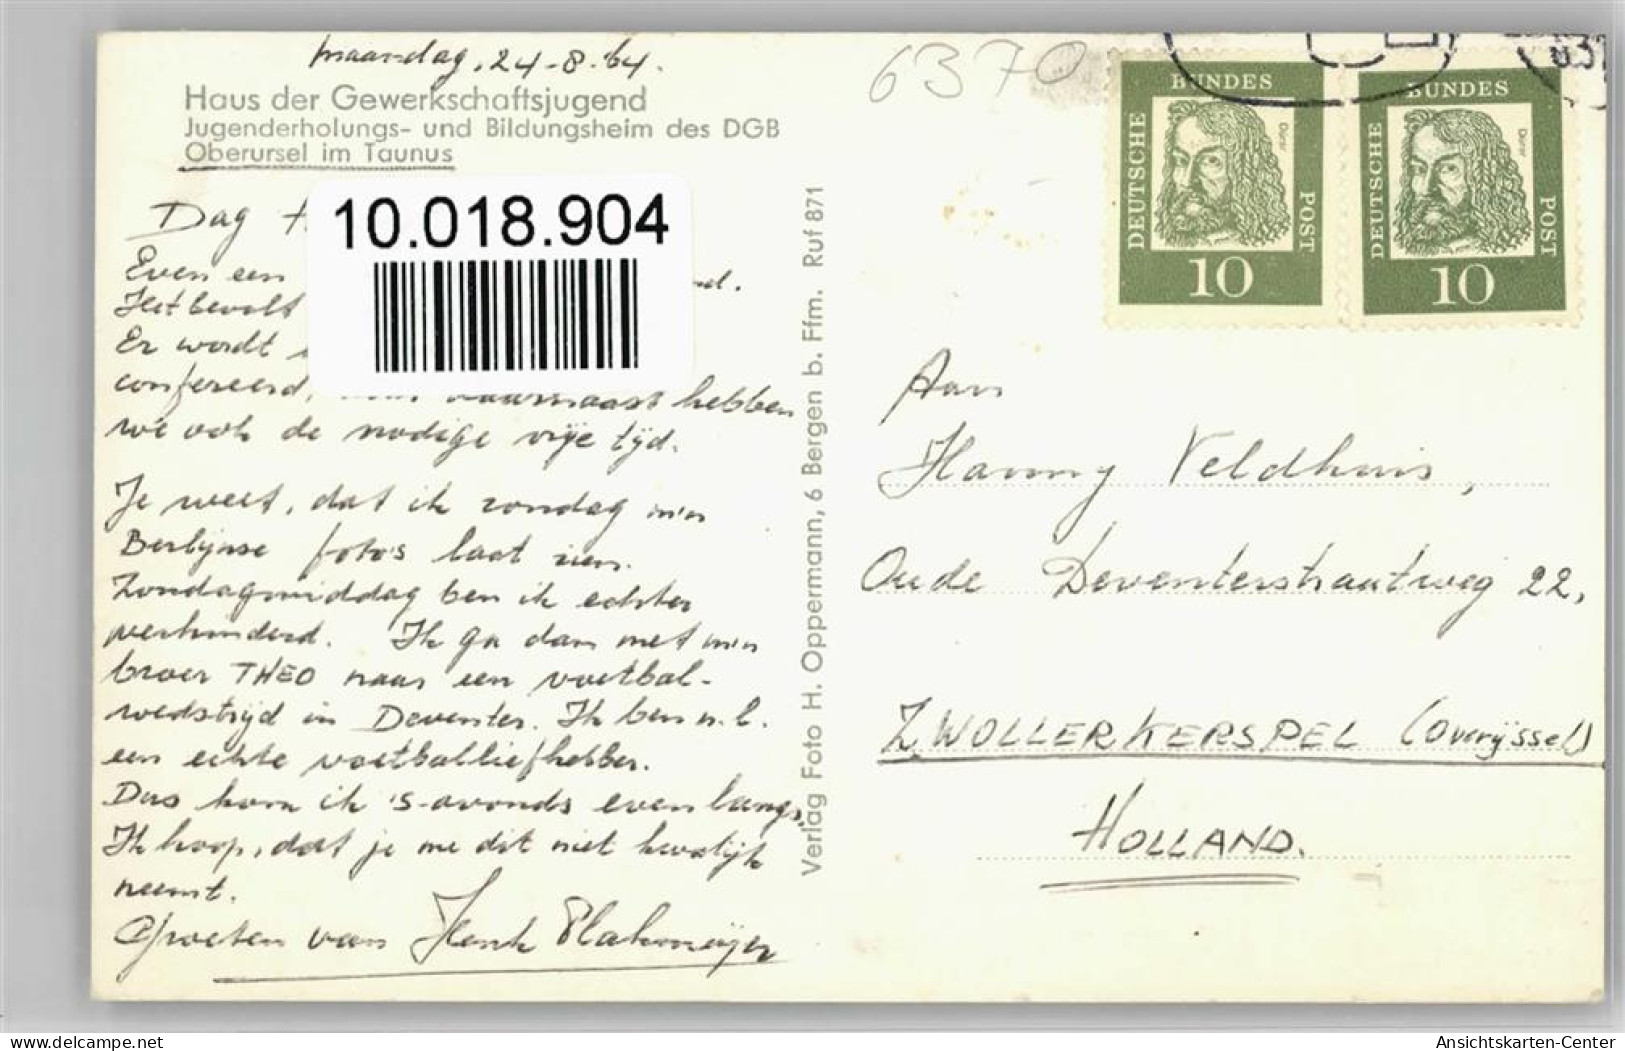 maandag, 24-8-'64.
Haus der Gewerkschaftsjugend
Jugenderholungs- und Bildungsheim des DGB
Oberursel im Taunus
10.018.904
Dag
Even een
Het bevalt
Er wordt
confereerd, daarnaast hebben
we ook de nodige vrije tijd.
Je weet, dat ik zondag m'n
Berlijnse foto's laat zien.
Zondagmiddag ben ik echter
verhinderd. Ik ga dan met m'n
broer THEO naar een voetbal-
wedstrijd in Deventer. Ik ben n.l.
een echte voetballiefhebber.
Dus kom ik 's-avonds even langs.
Ik hoop, dat je me dit niet kwalijk
neemt.
Groeten van Henk Plakmeijer
Verlag Foto H. Oppermann, 6 Bergen b. Ffm. Ruf 871
6370
BUNDES
DEUTSCHE
POST
Dürer
10
BUNDES
DEUTSCHE
POST
Dürer
10
Aan
Hanny Veldhuis,
Oude Deventerstraatweg 22,
ZWOLLERKERSPEL (Overijssel)
HOLLAND.
www.delcampe.net
Ansichtskarten-Center